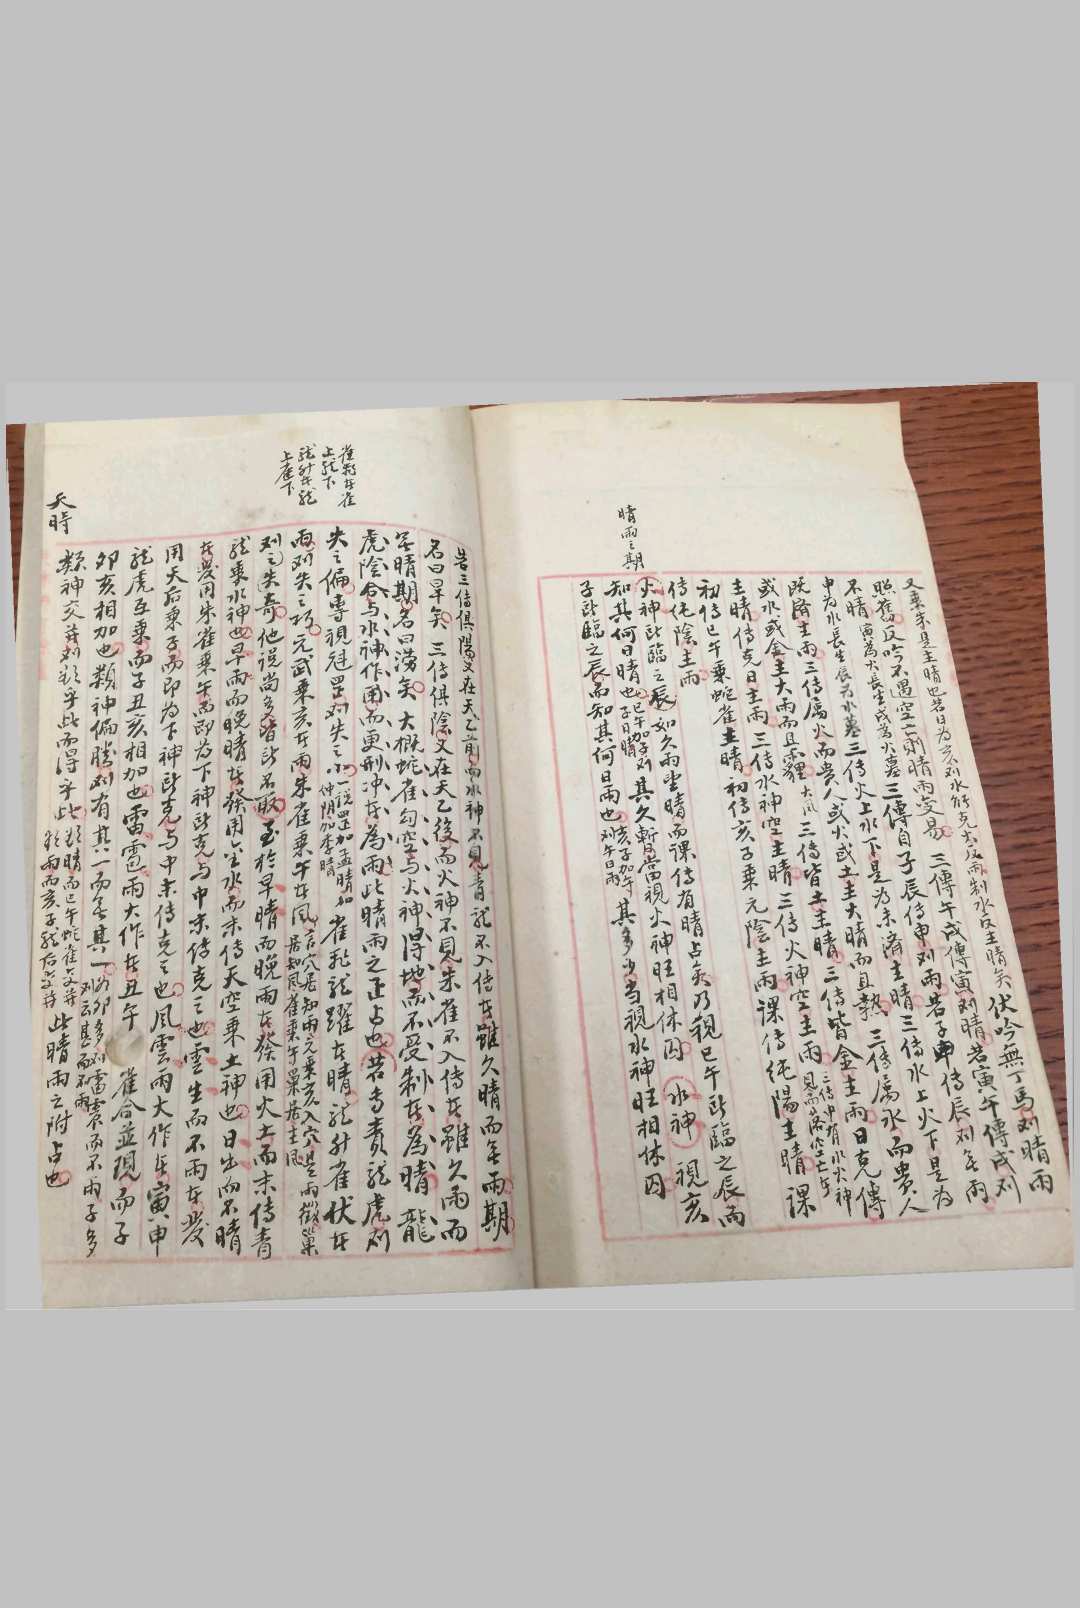 又乘朱是主晴也若日為亥則水能克去反雨制水反主晴矣 伏吟無丁馬則晴雨
照舊反吟不遇空亡則晴雨变易 三傳午戌傳寅則晴若寅午傳戌則
不晴寅為火長生戌為火墓三傳自子辰傳申則雨若子申傳辰則無雨
申為水長生辰為水墓三傳火上水下是為未濟主晴三傳水上火下是為
既濟主雨三傳屬火而貴人或火或土主大晴而且熱 三傳屬水而貴人
或水或金主大雨而且霾大風 三傳皆土主晴 三傳皆金主雨日克傳
主晴傳克日主雨 三傳水神空主晴 三傳火神空主雨
初傳巳午乘蛇雀主晴 初傳亥子乘元陰主雨 課傳純陽主晴課
傳純陰主雨
晴雨之期
火神所臨之辰 如久雨望晴而課傳有晴占矣乃視巳午所臨之辰而
知其何日晴也 其久暫當視火神旺相休囚 水神 視亥
子所臨之辰而知其何日雨也 其多少当視水神旺相休囚
若三傳俱陽又在天乙前而水神不見青龍不入傳者雖久晴而無雨期
名曰旱矣 三傳俱陰又在天乙後而火神不見朱雀不入傳者雖久雨而
無晴期名曰澇矣 大概蛇雀勾空与火神得地而不受制者為晴龍
虎陰合与水神作用而更刑冲者為雨此晴雨之正占也若专责龍虎則
失之偏專視冠罡則失之 一說罡加孟晴加仲陰加季晴 雀飛龍躍者晴龍升雀伏者
雀飛者雀上龍下
龍升者龍上雀下
雨則失之巧元武乘亥者雨朱雀乘午者風
則失之奇他說尚多皆所不取至於早晴而晚雨者發用火土而末傳青
龍乘水神也早雨而晚晴者發用金水而末傳天空乘土神也日出而不晴
者發用朱雀乘午而即為下神所克与中末傳克之也雲生而不雨者發
用天后乘子而即為下神所克与中末傳克之也風雲雨大作者寅申
龍虎互乘而子丑亥相加也雷雹雨大作者丑午 雀合並現而子
卯亥相加也類神偏勝則有其一而無其一 如卯多則雷震而不雨子多則云甚而不雨
類神交并則类乎此而得乎此 此晴雨之附占也
天時